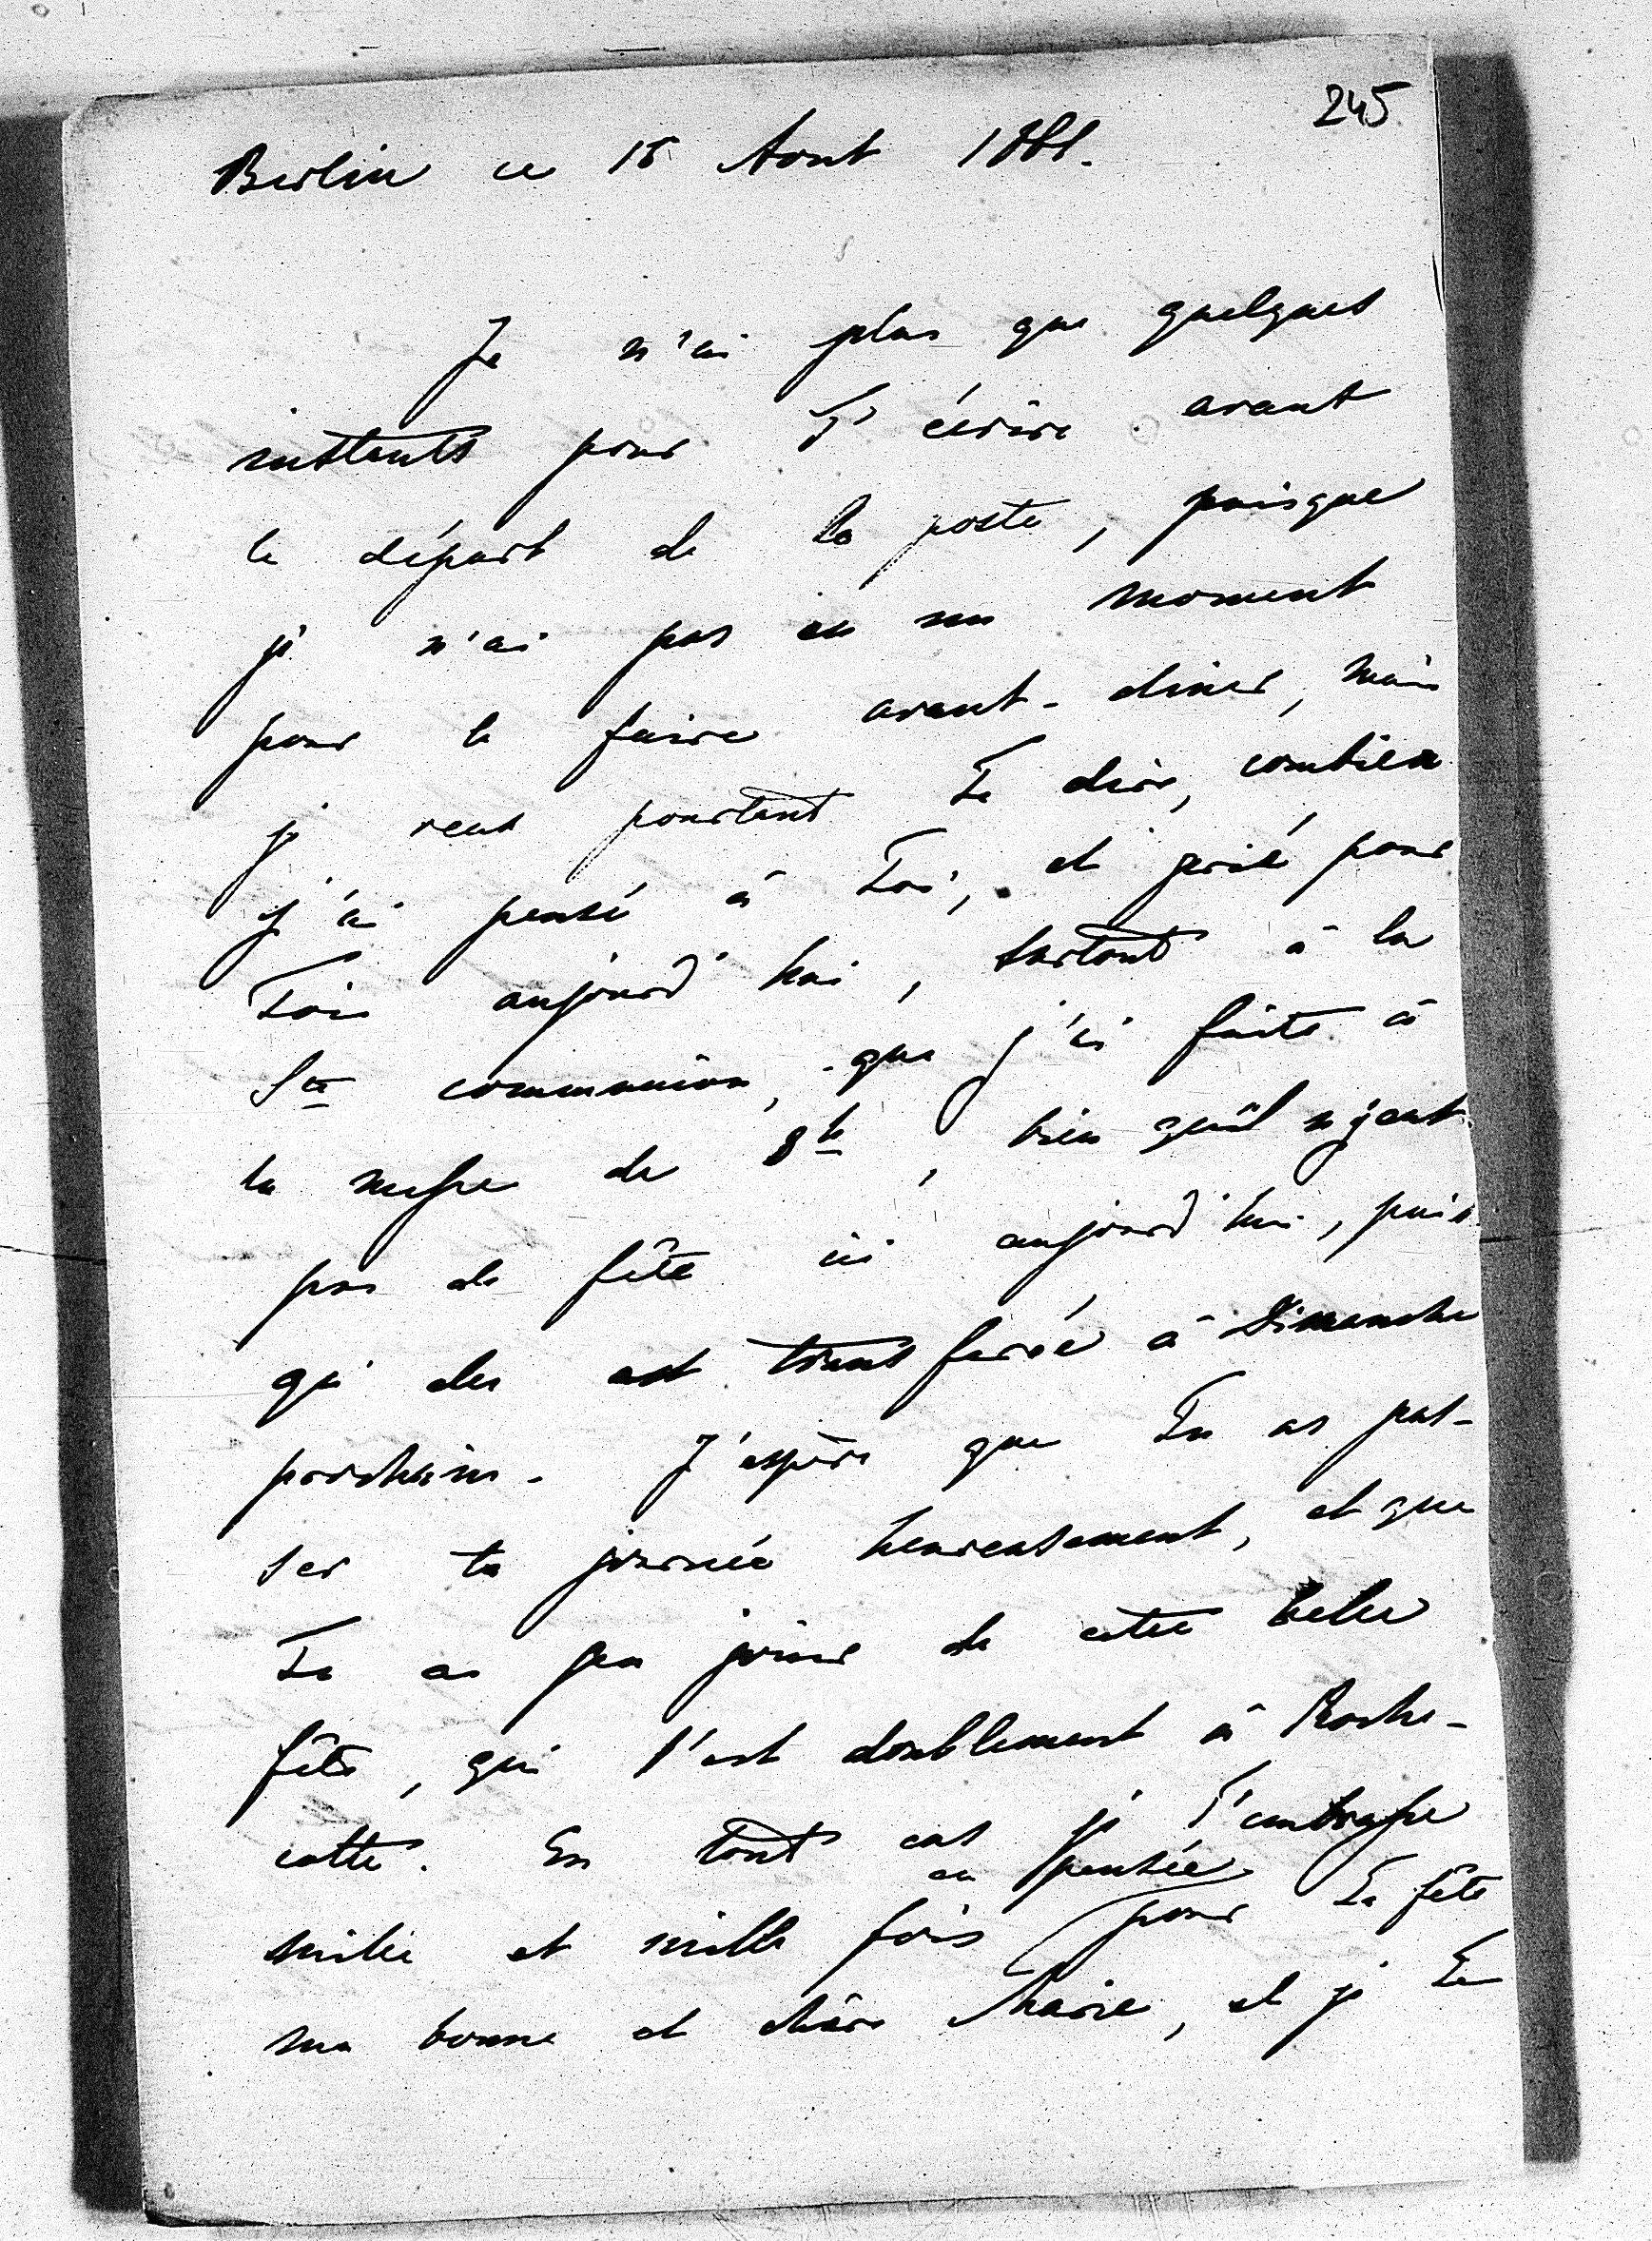 245
Berlin ce 15 Aout 1881.
Je n'ai plus que quelques
instants pour T'écrire avant
le départ de la poste, puisque
je n'ai pas eu un moment
pour le faire avant-diner, mais
je veux pourtant Te dire, combien
j'ai pensé à Toi, et prié pour
Toi aujourd'hui, surtout à la
Ste communion, que j'ai faite à
la messe de 8h, bien qu'il n'y eut
pas de fête ici aujourd'hui, puis
qu'elle est transferée à Dimanche
prochain. J'espère que Tu as pas-
ser ta journée heureusement, et que
Tu as pu jouir de cette belle
fête, qui l'est doublement à Roche-
cotte. En tout cas je T'embrasse
en pensée
mille et mille fois pour Ta fête
ma bonne et chère Marie, et je Te